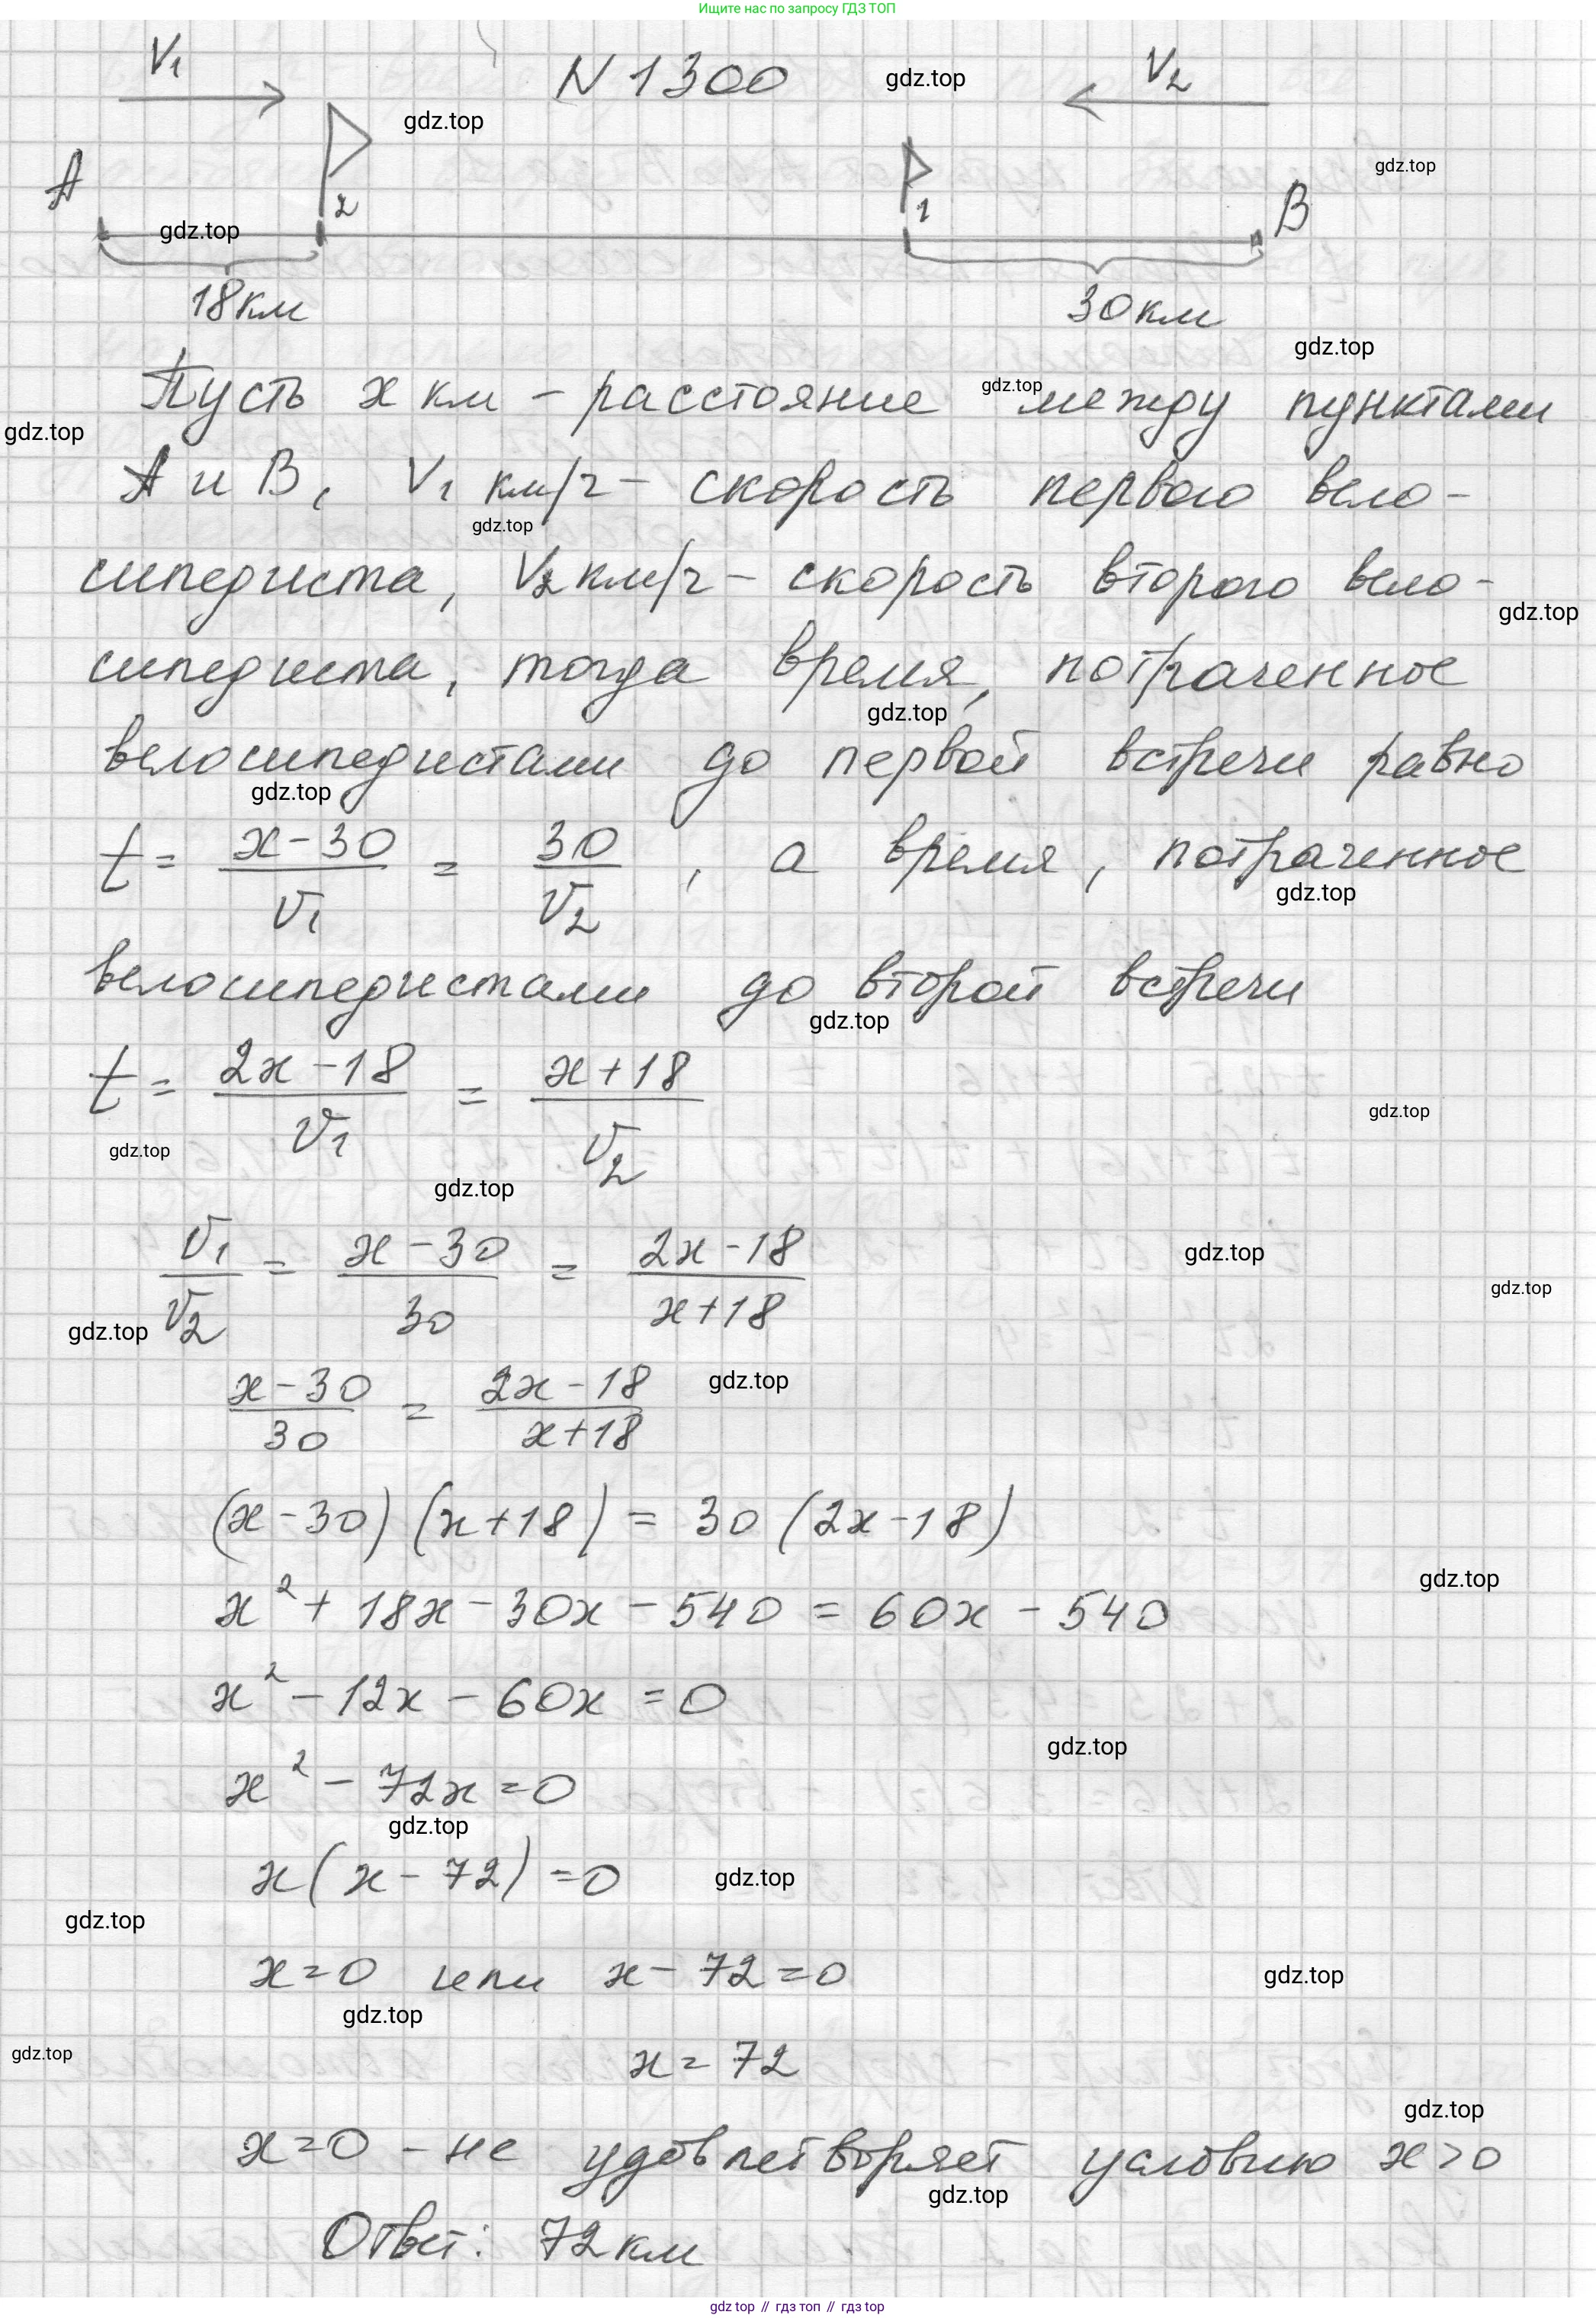 Ищите нас по запросу ГДЗ ТОП
V₁ N 1300 gdz.top V₂
gdz.top
A 2 1 gdz.top
gdz.top B
18км 30км
gdz.top
Пусть x км - расстояние gdz.top между пунктами
gdz.top
A и B, V₁ км/ч - скорость первого вело-
gdz.top
сипедиста, V₂ км/ч - скорость второго вело-
gdz.top
сипедиста, тогда время, потраченное
gdz.top
велосипедистами до первой встречи равно
gdz.top
t = (x-30)/V₁ = 30/V₂, а время, потраченное
gdz.top
велосипедистами до второй встречи
gdz.top
t = (2x-18)/V₁ = (x+18)/V₂
gdz.top
gdz.top
gdz.top
V₁/V₂ = (x-30)/30 = (2x-18)/(x+18)
gdz.top
gdz.top
gdz.top
(x-30)/30 = (2x-18)/(x+18)
gdz.top
(x-30)(x+18) = 30(2x-18)
gdz.top
x² + 18x - 30x - 540 = 60x - 540
x² - 12x - 60x = 0
gdz.top
x² - 72x = 0
gdz.top
x(x-72) = 0 gdz.top
gdz.top
x=0 или x-72=0 gdz.top
gdz.top
gdz.top x = 72
gdz.top
x=0 - не удовлетворяет условию x>0
gdz.top
Ответ: 72км
gdz top // гдз топ // гдз top